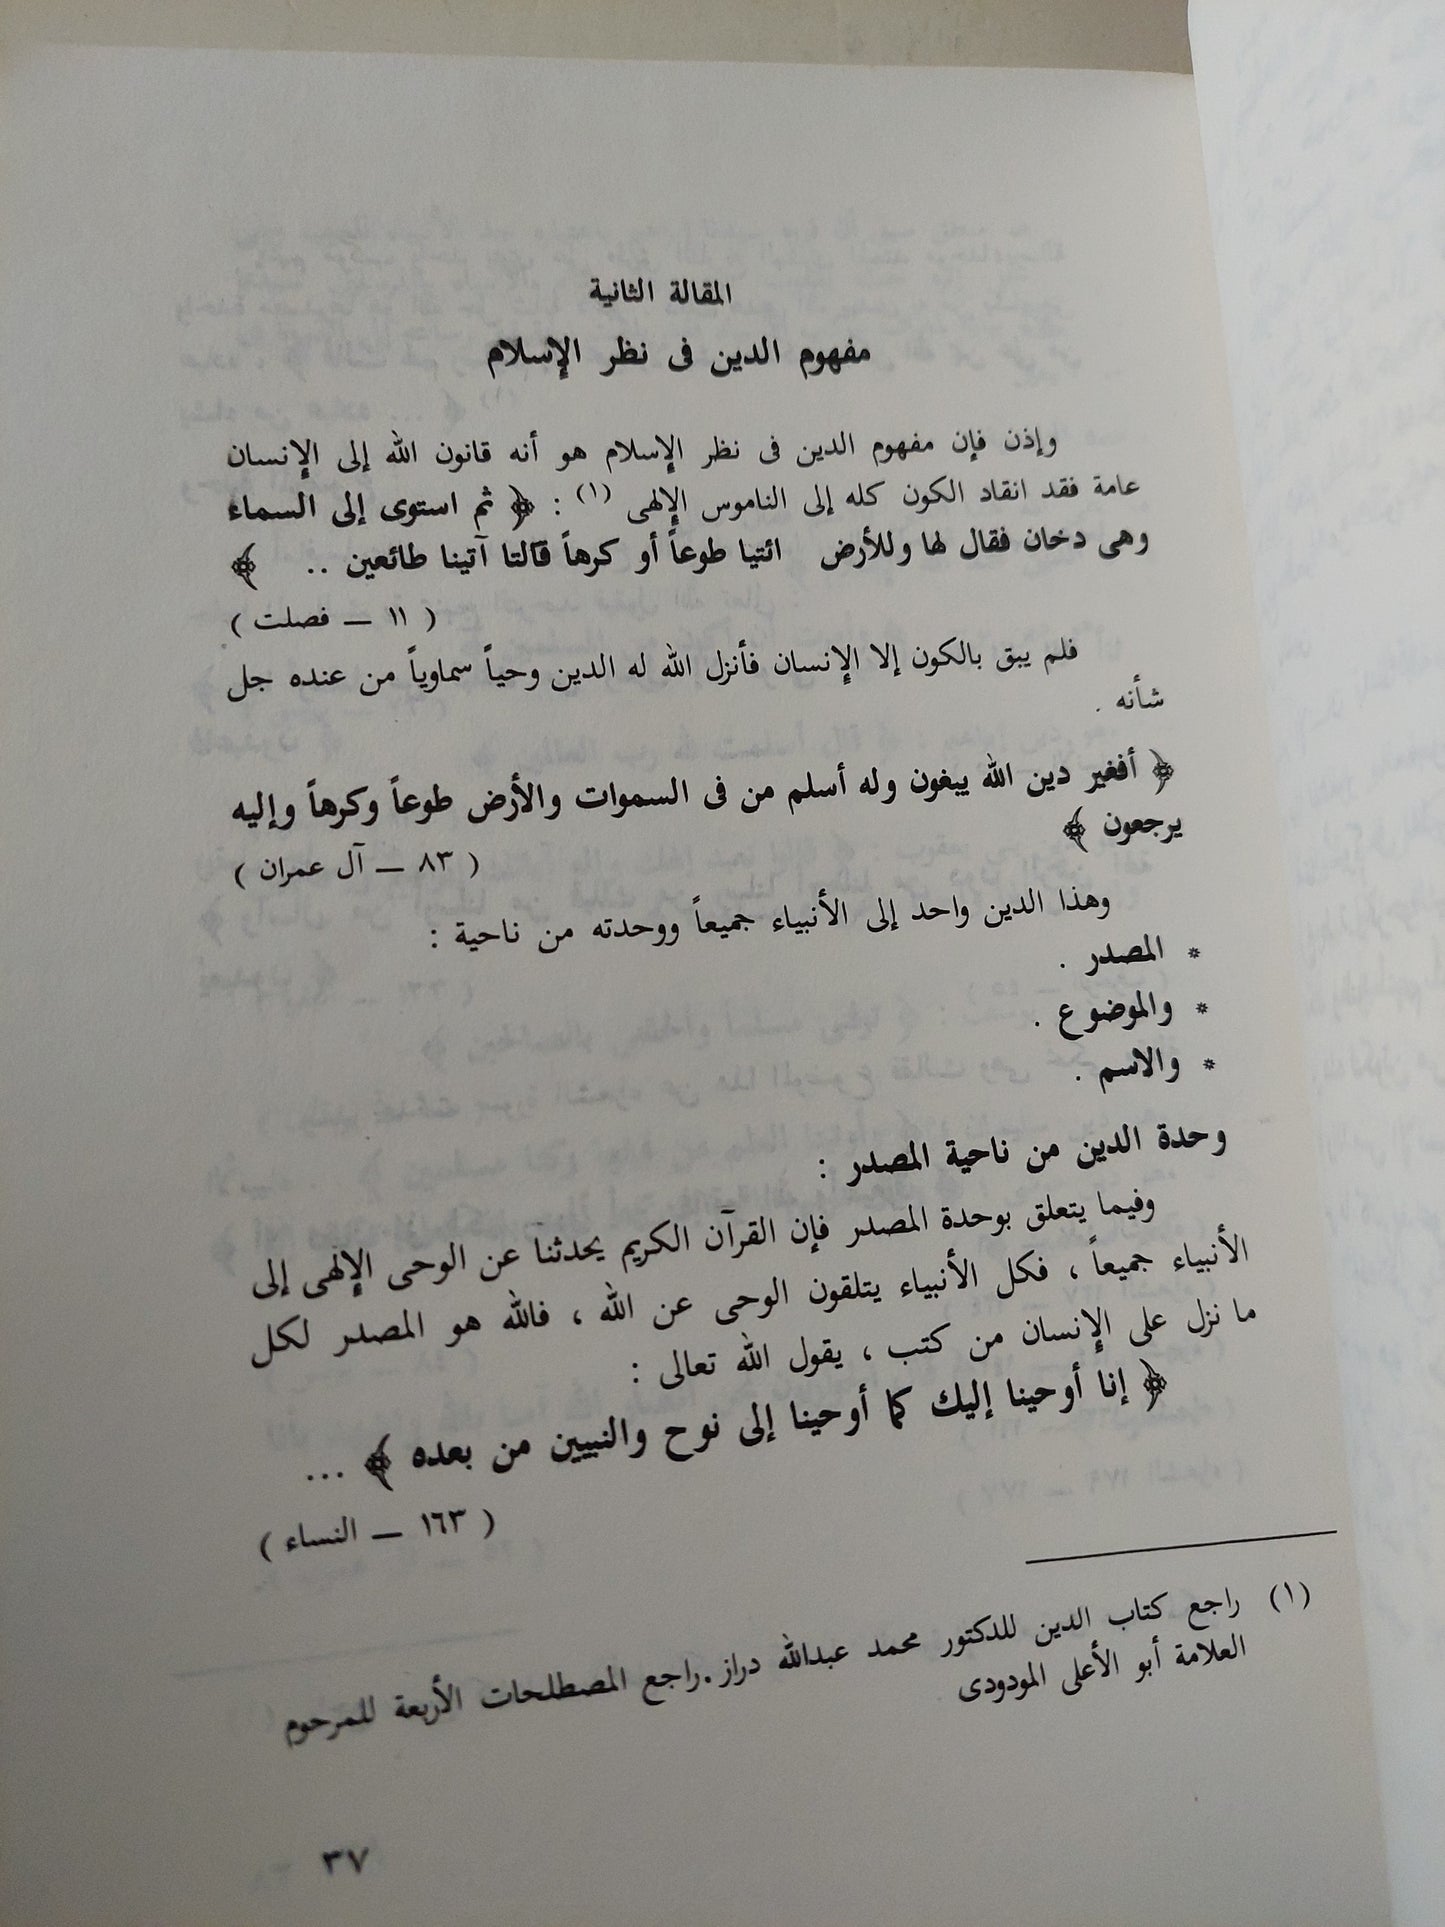 المقالة الثانية
مفهوم الدين فى نظر الإسلام
وإذن فإن مفهوم الدين فى نظر الإسلام هو أنه قانون الله إلى الإنسان
عامة فقد انقاد الكون كله إلى الناموس الإلهى (١) : ﴿ ثم استوى إلى السماء
وهى دخان فقال لها وللأرض ائتيا طوعاً أو كرهاً قالتا آتينا طائعين .. ﴾
( ١١ — فصلت )
فلم يبق بالكون إلا الإنسان فأنزل الله له الدين وحياً سماوياً من عنده جل
شأنه .
﴿ أفغير دين الله يبغون وله أسلم من فى السموات والأرض طوعاً وكرهاً وإليه
يرجعون ﴾
( ٨٣ — آل عمران )
وهذا الدين واحد إلى الأنبياء جميعاً ووحدته من ناحية :
* المصدر .
* والموضوع .
* والاسم .
وحدة الدين من ناحية المصدر :
وفيما يتعلق بوحدة المصدر فإن القرآن الكريم يحدثنا عن الوحى الإلهى إلى
الأنبياء جميعاً ، فكل الأنبياء يتلقون الوحى عن الله ، فالله هو المصدر لكل
ما نزل على الإنسان من كتب ، يقول الله تعالى :
﴿ إنا أوحينا إليك كما أوحينا إلى نوح والنبيين من بعده ﴾ ...
( ١٦٣ — النساء )
(١) راجع كتاب الدين للدكتور محمد عبدالله دراز.راجع المصطلحات الأربعة للمرحوم
العلامة أبو الأعلى المودودى
٣٧